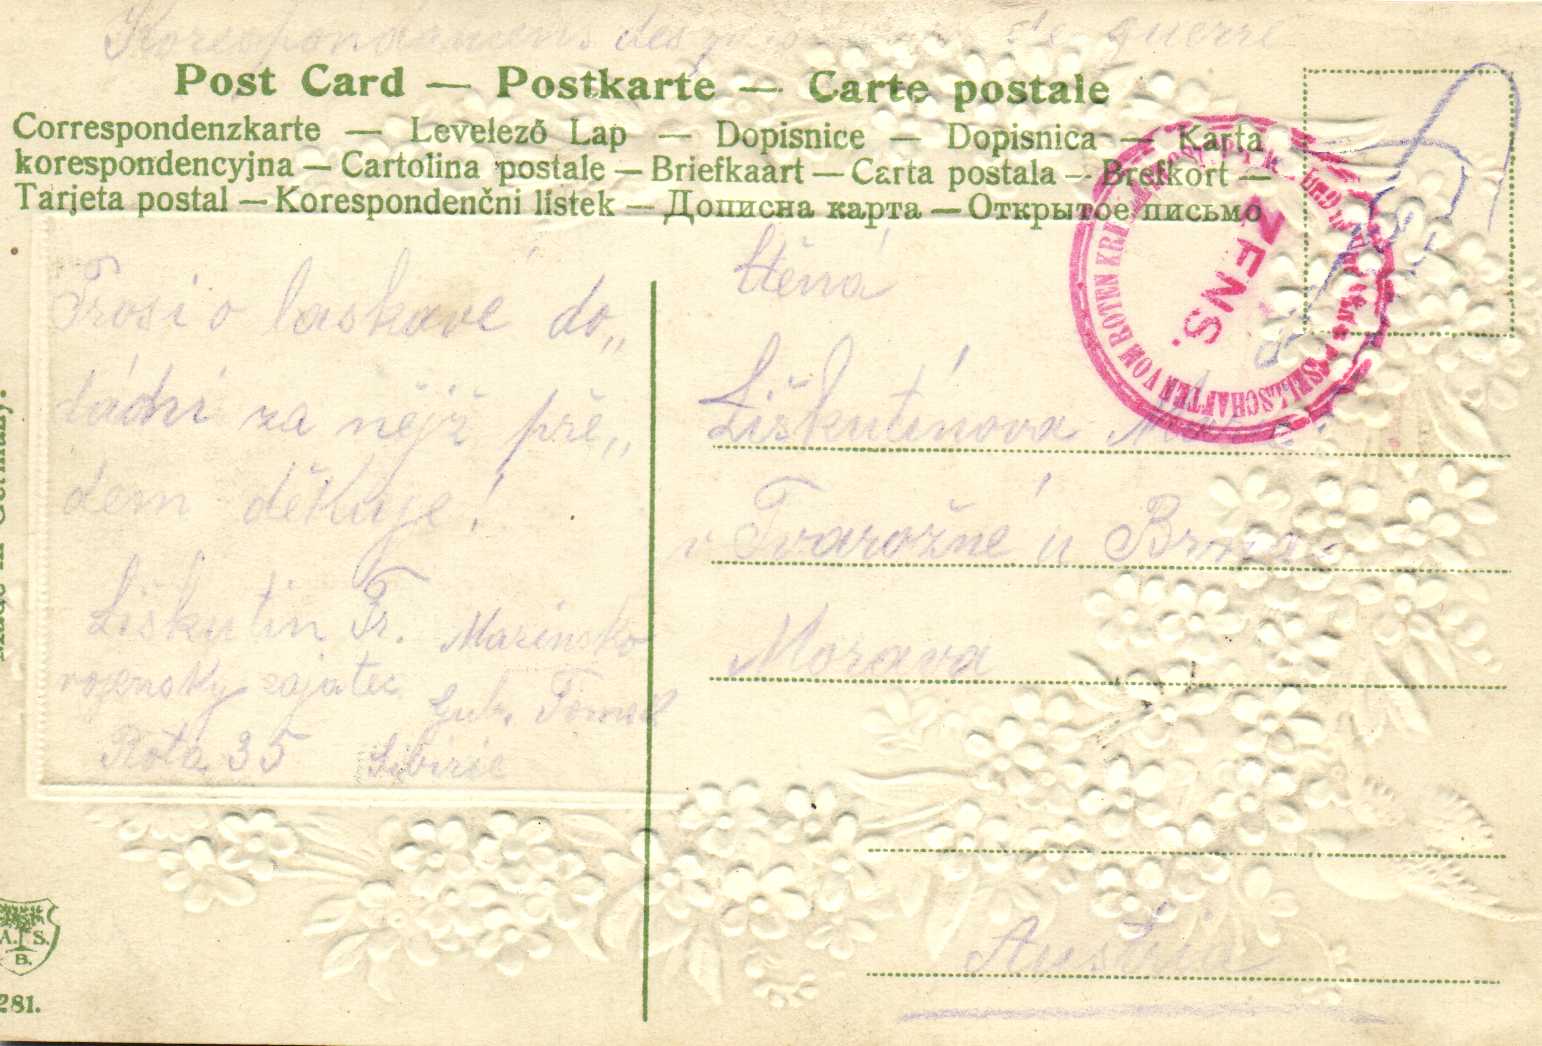 Korespondamens des de guerre
Post Card — Postkarte — Carte postale
Correspondenzkarte — Levelező Lap — Dopisnice — Dopisnica — Karta
korespondencyjna — Cartolina postale — Briefkaart — Carta postala — Brefkort —
Tarjeta postal — Korespondenčni listek — Дописна карта — Открытое письмо
ZENS.
VOM ROTEN
Prosí o laskavé do„
dádní za nějž pře„
dem děkuje!
Liškutin Fr.
vojenský zajatec
Rota 35
Marinsko
Gub. Tomsk
Sibirie
Ctěná
Liškutínova
v Tvarožné u Brna
Morava
Austria
Made in Germany.
A. S.
B.
281.